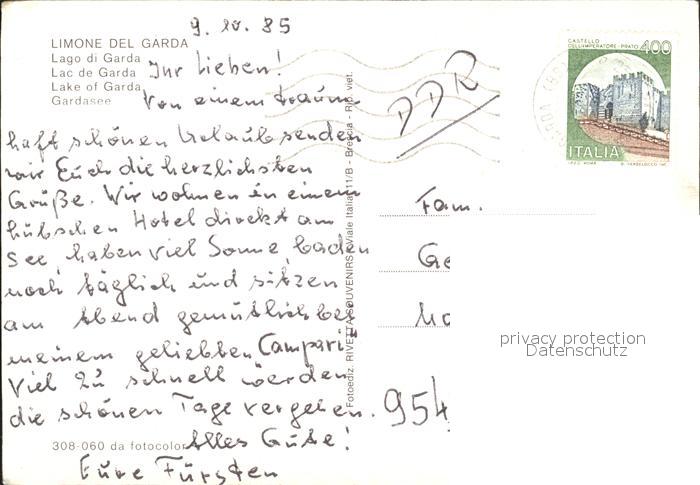 9. 10. 85
LIMONE DEL GARDA
Lago di Garda
Lac de Garda
Lake of Garda
Gardasee
Ihr Lieben!
Von einem traum-
haft schönen Urlaub senden
wir Euch die herzlichsten
Grüße. Wir wohnen in einem
hübschen Hotel direkt am
See, haben viel Sonne, baden
noch täglich und sitzen
am Abend gemütlich bei
meinem geliebten Campari.
Viel zu schnell werden
die schönen Tage vergehen.
Alles Gute!
Eure Fürsten
308-060 da fotocolor
Fotoediz. RIVETTA SOUVENIRS - Viale Italia 11/B - Brescia - Rip. viet.
DDR
CASTELLO
DELL'IMPERATORE - PRATO
400
ITALIA
Fam.
Ge
954
privacy protection
Datenschutz